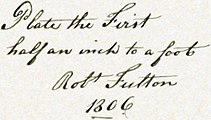 Plate the First
half an inch to a foot
Robt Fulton
1806